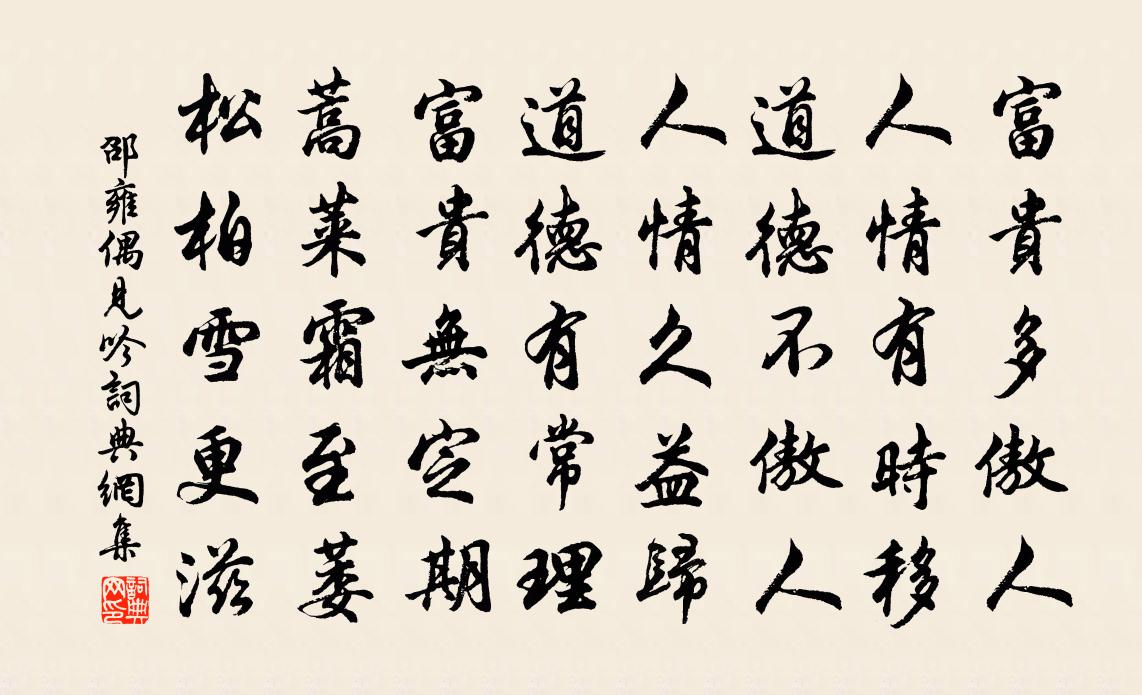 富貴多傲人
人情有時移
道德不傲人
人情久益歸
道德有常理
富貴無定期
蒿萊霜至萎
松柏雪更滋
邵雍偶見吟詞典網集
詞典網印